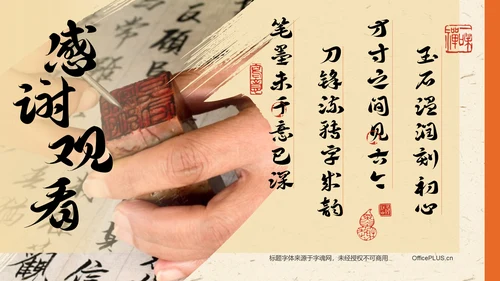 感谢观看
玉石温润刻初心
方寸之间见古今
刀锋流转字成韵
笔墨未干意已深
标题字体来源于字魂网，未经授权不可商用
OfficePLUS.cn